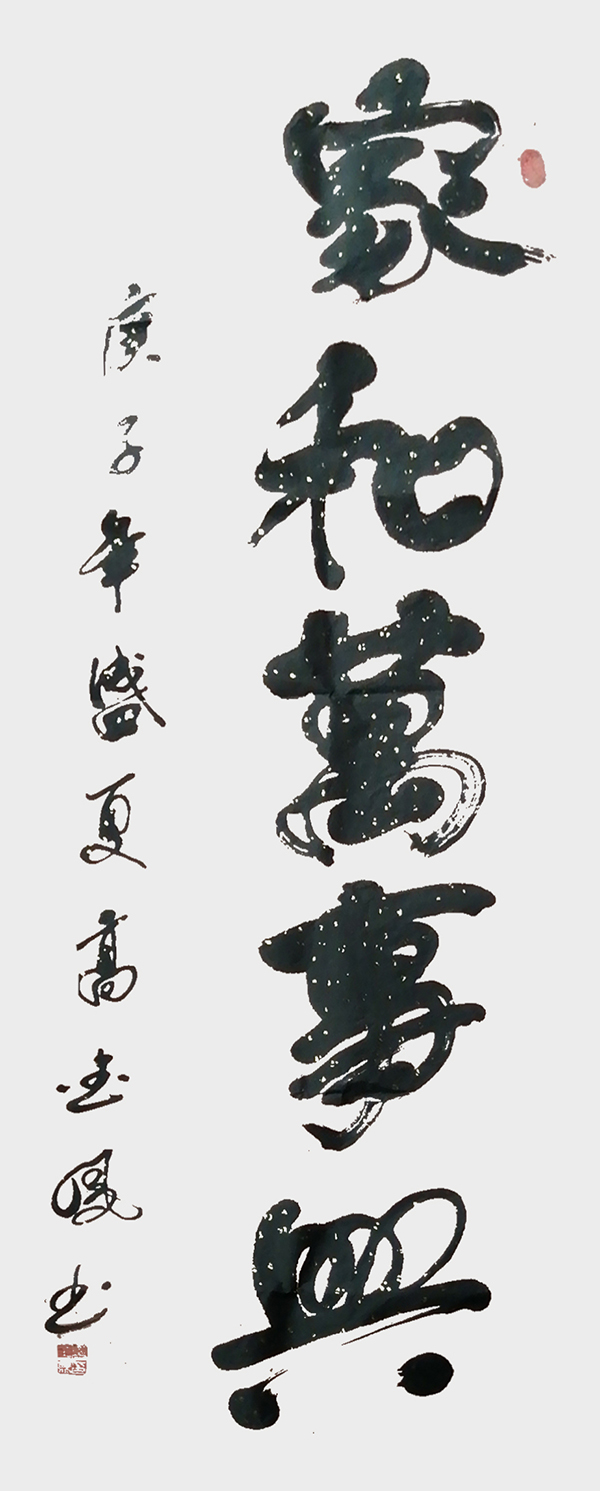 家和萬事興
庚子年盛夏高志鳳书